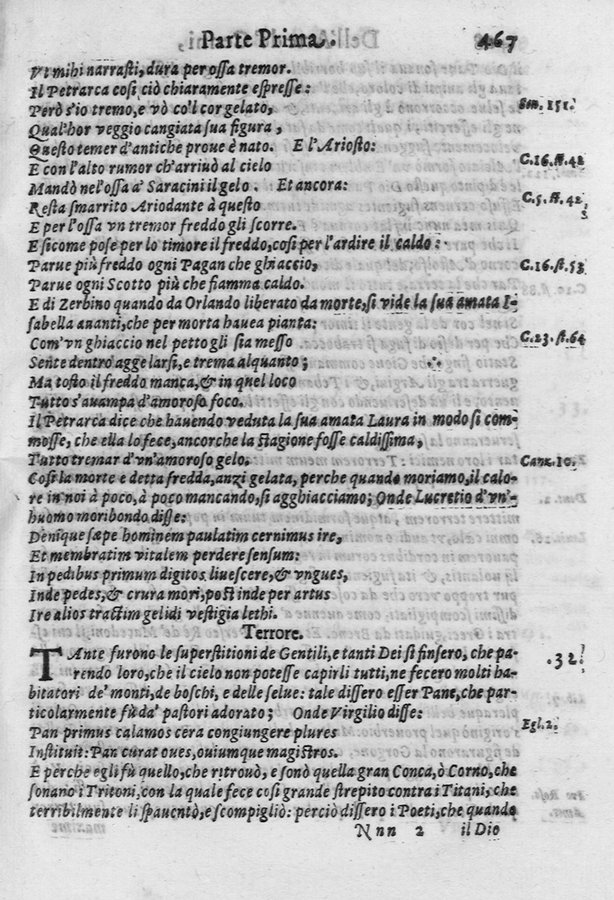 Parte Prima. 467
Vt mihi narrasti, dura per ossa tremor.
Il Petrarca così ciò chiaramente espresse:
Però s'io tremo, e vò co'l cor gelato, Son. 151.
Qual'hor veggio cangiata sua figura,
Questo temer d'antiche proue è nato. E l'Ariosto:
E con l'alto rumor ch'arriuò al cielo C. 16. st. 42
Mandò nel'ossa a' Saracini il gelo. Et ancora:
Resta smarrito Ariodante à questo C. 5. st. 42.
E per l'ossa vn tremor freddo gli scorre.
E sicome pose per lo timore il freddo, così per l'ardire il caldo:
Parue più freddo ogni Pagan che ghiaccio, C. 16. st. 53
Parue ogni Scotto più che fiamma caldo.
E di Zerbino quando da Orlando liberato da morte, si vide la sua amata I-
sabella ananti, che per morta hauea pianta:
Com'vn ghiaccio nel petto gli sia messo C. 23. st. 64
Sente dentro aggelarsi, e trema alquanto;
Ma tosto il freddo manca, & in quel loco
Tutto s'auampa d'amoroso foco.
Il Petrarca dice che hauendo veduta la sua amata Laura in modo si com-
mosse, che ella lo fece, ancorche la stagione fosse caldissima,
Tutto tremar d'vn'amoroso gelo. Canz. 10.
Così la morte e detta fredda, anzi gelata, perche quando moriamo, il calo-
re in noi à poco, à poco mancando, si agghiacciamo; Onde Lucretio d'vn'
huomo moribondo disse:
Denique sæpe hominem paulatim cernimus ire,
Et membratim vitalem perdere sensum:
In pedibus primum digitos liuescere, & vngues,
Inde pedes, & crura mori, post inde per artus
Ire alios tractim gelidi vestigia lethi.
Terrore.
TAnte furono le superstitioni de Gentili, e tanti Dei si finsero, che pa- 32
rendo loro, che il cielo non potesse capirli tutti, ne fecero molti ha-
bitatori de' monti, de boschi, e delle selue: tale dissero esser Pane, che par-
ticolarmente fù da' pastori adorato; Onde Virgilio disse:
Pan primus calamos cera congiungere plures Egl. 2.
Instituit: Pan curat oues, ouiumque magistros.
E perche egli fù quello, che ritrouò, e sonò quella gran Conca, ò Corno, che
sonano i Tritoni, con la quale fece così grande strepito contra i Titani, che
terribilmente li spauentò, e scompigliò: perciò dissero i Poeti, che quando
Nnn 2 il Dio